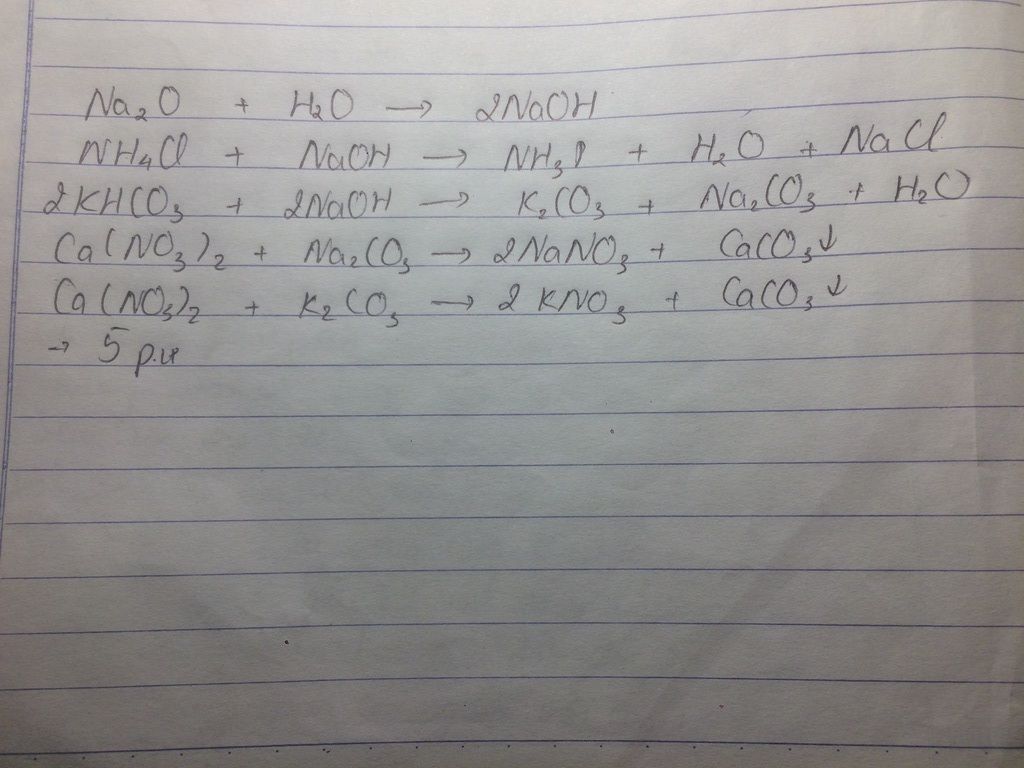 Na₂O + H₂O → 2NaOH
NH₄Cl + NaOH → NH₃↑ + H₂O + NaCl
2KHCO₃ + 2NaOH → K₂CO₃ + Na₂CO₃ + H₂O
Ca(NO₃)₂ + Na₂CO₃ → 2NaNO₃ + CaCO₃↓
Ca(NO₃)₂ + K₂CO₃ → 2KNO₃ + CaCO₃↓
→ 5 p.ư